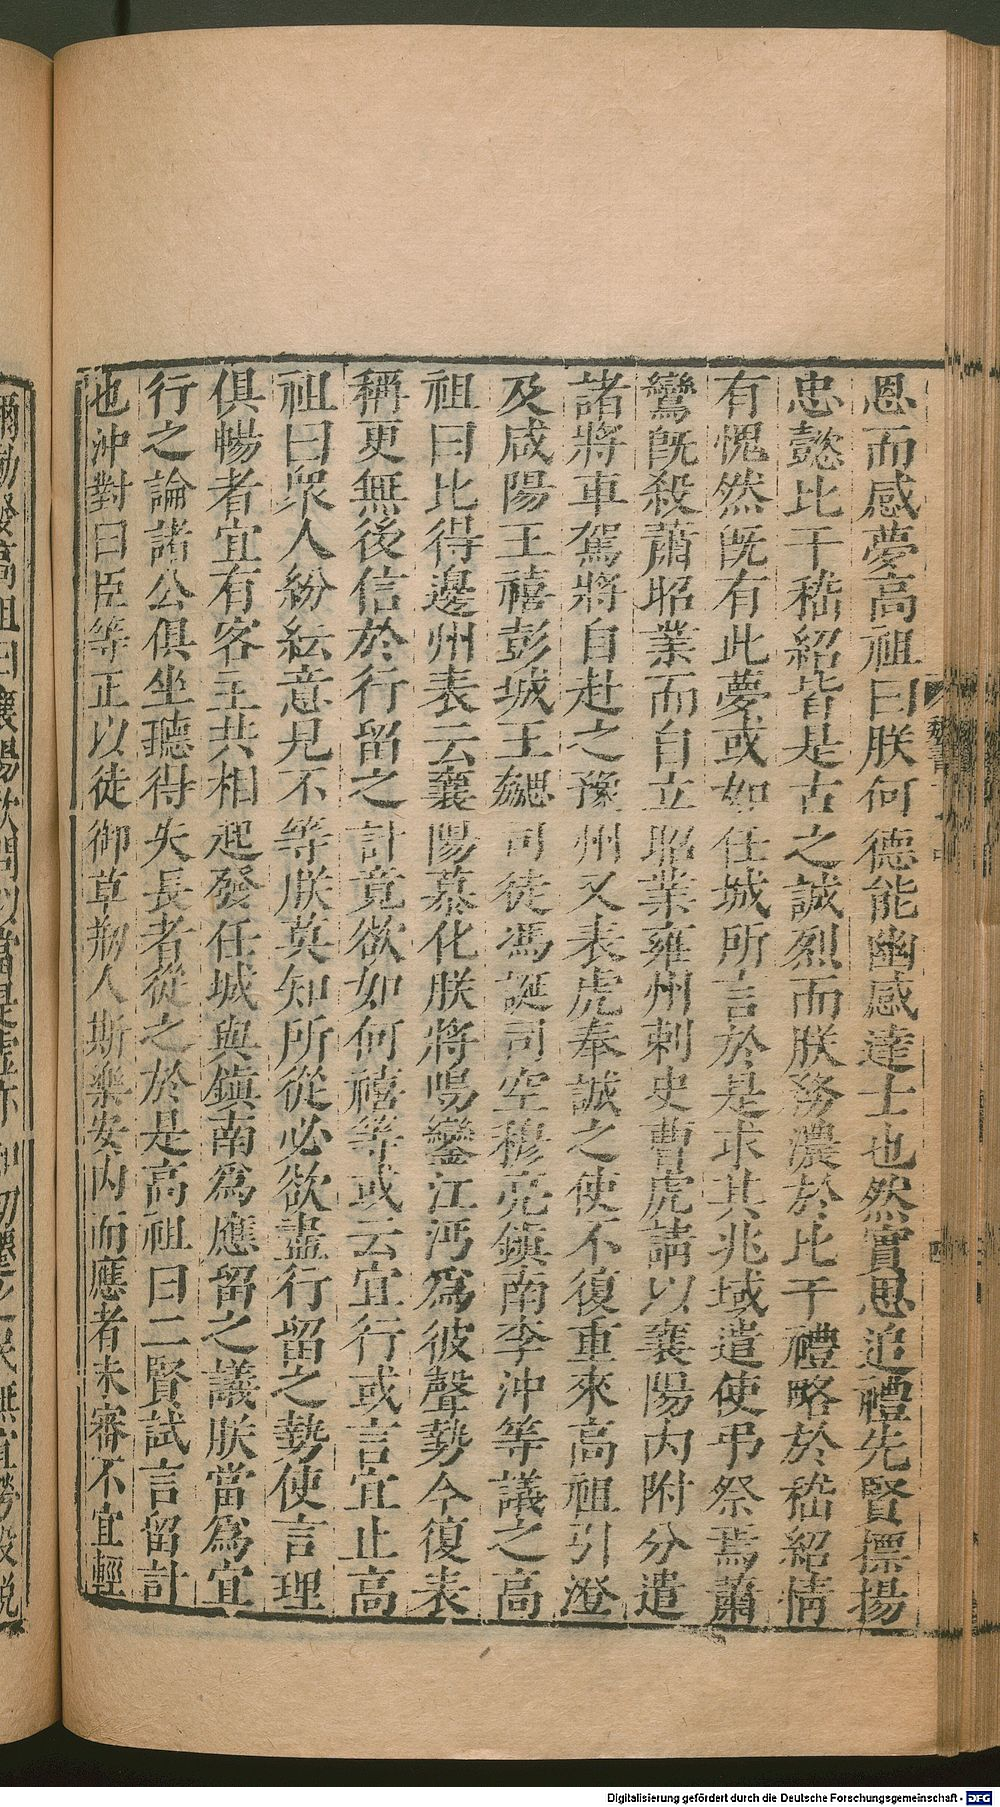 恩而感夢高祖曰朕何德能幽感達士也然實思追禮先賢摽揚
忠懿比干嵇紹皆是古之誠烈而朕務濃於比干禮略於嵇紹情
有愧然既有此夢或如任城所言於是求其兆域遣使弔祭焉蕭
鸞既殺蕭昭業而自立昭業雍州刺史曹虎請以襄陽内附分遣
諸將車駕將自赴之豫州又表虎奉誠之使不復重來高祖引澄
及咸陽王禧彭城王勰司徒馮誕司空穆亮鎮南李沖等議之高
祖曰比得邊州表云襄陽慕化朕將鳴鑾江沔為彼聲勢今復表
稱更無後信於行留之計竟欲如何禧等或云宜行或言宜止高
祖曰眾人紛紜意見不等朕莫知所從必欲盡行留之勢使言理
俱暢者宜有客主共相起發任城與鎮南為應留之議朕當為宜
行之論諸公俱坐聽得失長者從之於是高祖曰二賢試言留計
也沖對曰臣等正以徒御草剏人斯樂安内而應者未審不宜輕
魏書
Digitalisierung gefördert durch die Deutsche Forschungsgemeinschaft - DFG